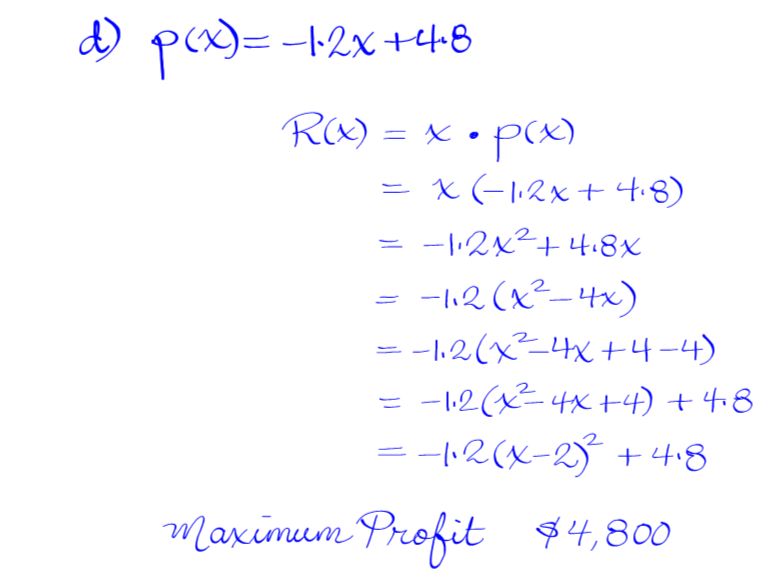 d) p(x) = -1.2x + 4.8
R(x) = x • p(x)
= x (-1.2x + 4.8)
= -1.2x² + 4.8x
= -1.2 (x² - 4x)
= -1.2 (x² - 4x + 4 - 4)
= -1.2 (x² - 4x + 4) + 4.8
= -1.2 (x - 2)² + 4.8
Maximum Profit $4,800